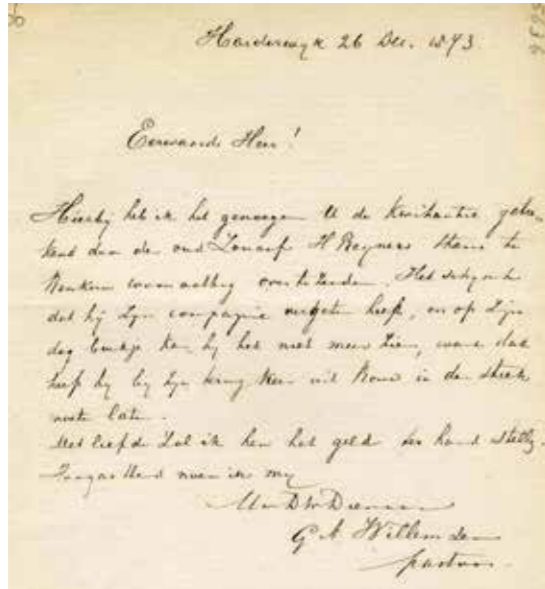 Harderwyk 26 Dec. 1893.
Eerwaarde Heer!
Hierby heb ik het genoegen U de kwitantie getee-
kend door de oud Zouaaf H Reyners thans te
Renkum woonachtig over te zenden. Het schynt
dat hy zyn compagnie vergeten heeft, en op zyn
boekje kan hy het niet meer zien, want dat
heeft hy by zyn terug keer uit Rome in de steek
moeten laten.
Met liefde zal ik hem het geld ter hand stellen.
noem ik my
Uw Dw Dienaar
G A Willemsen
pastoor